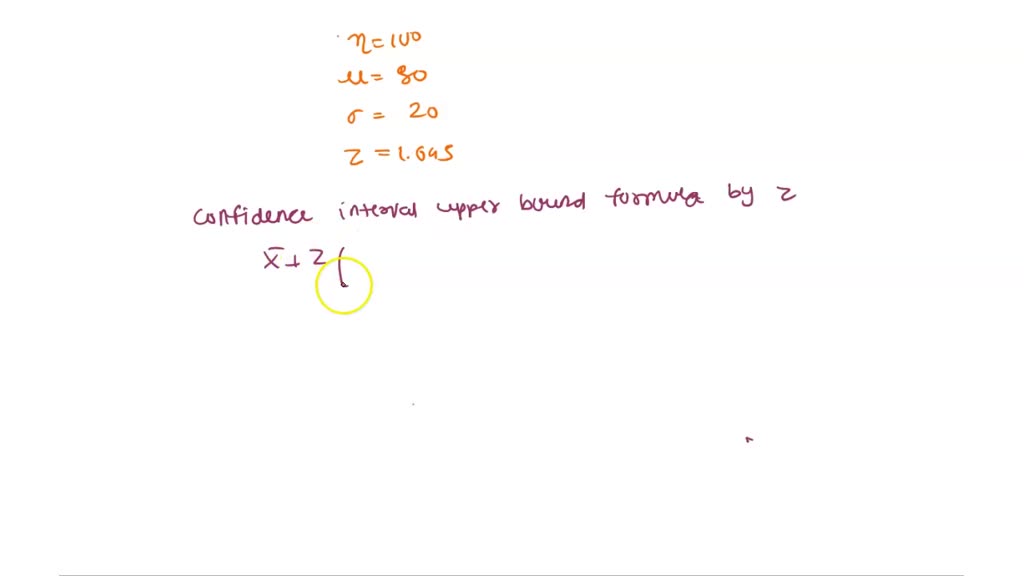 n=100
μ= 80
σ = 20
z = 1.645
confidence interval upper bound formula by z
x̄+z(